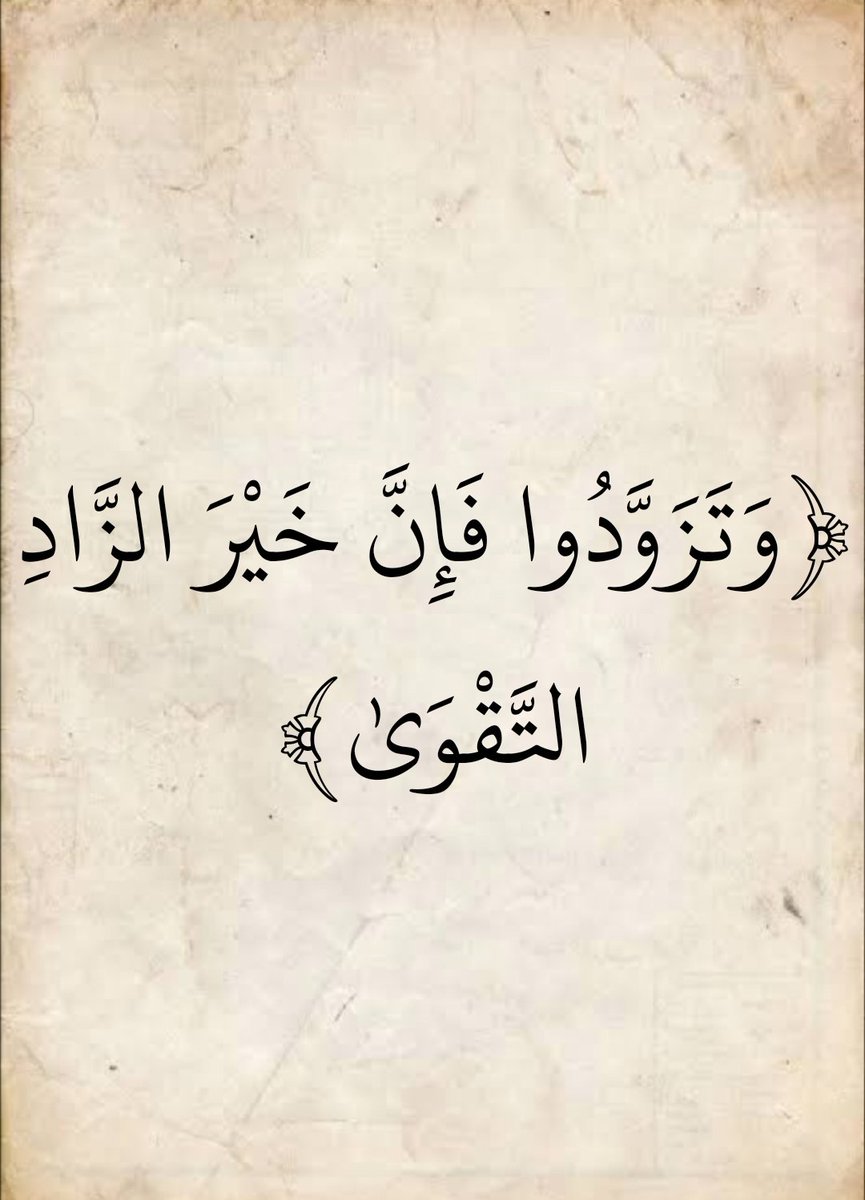 ﴿وَتَزَوَّدُوا فَإِنَّ خَيْرَ الزَّادِ
التَّقْوَىٰ﴾